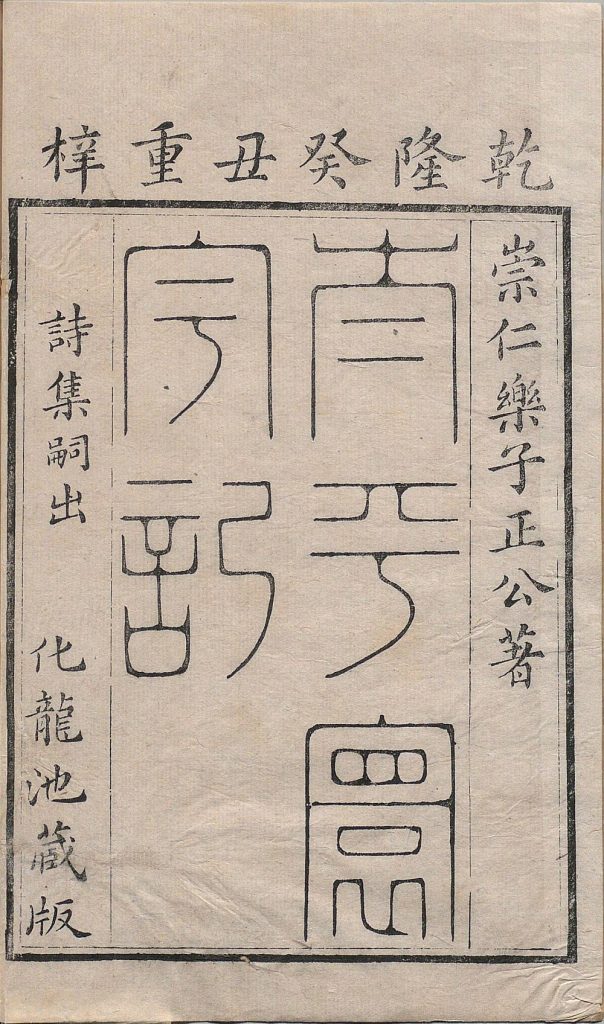 乾隆癸丑重梓
崇仁樂子正公著
太平寰
宇記
詩集嗣出
化龍池藏版